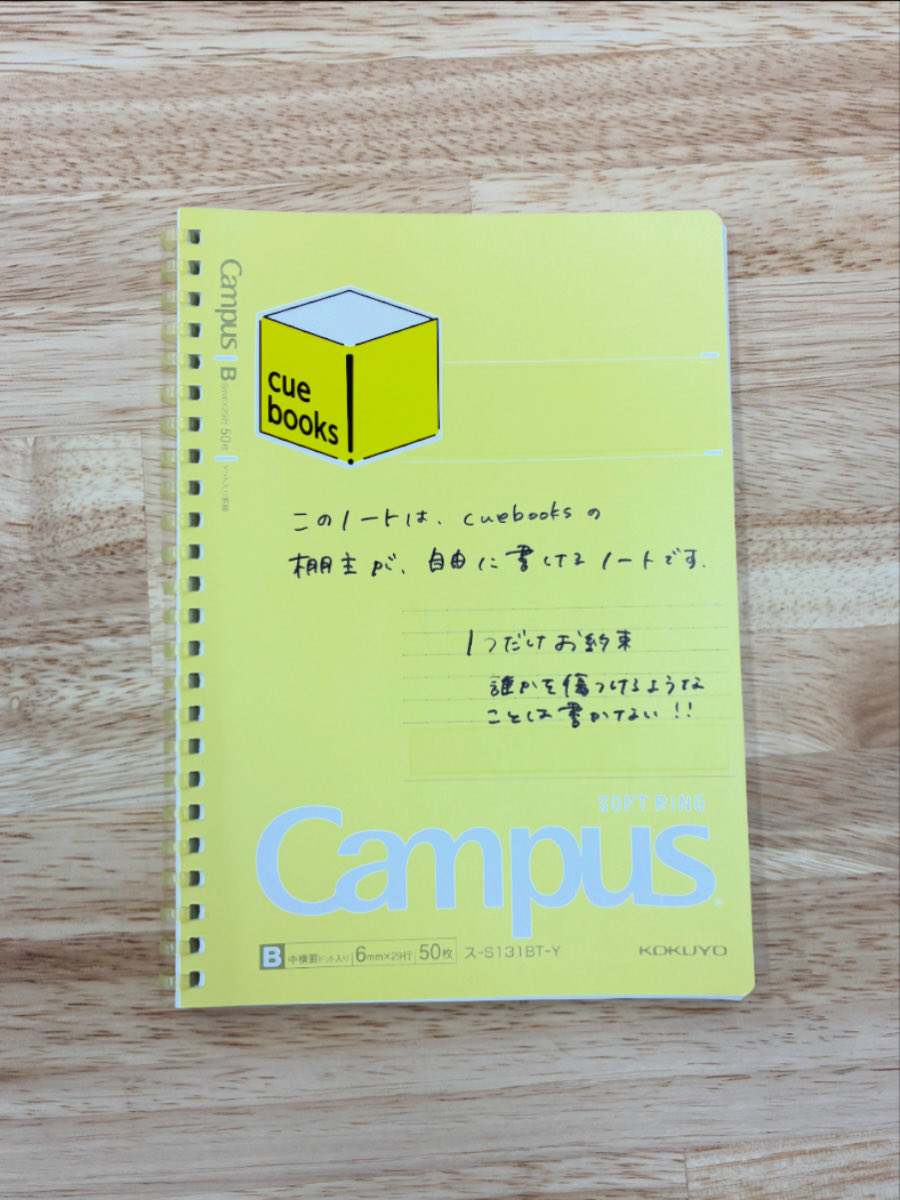 Campus B 6mm×29行 50枚 ドット入り罫線
cue
books
このノートは、cuebooksの
棚主が、自由に書けるノートです.
1つだけお約束
誰かを傷つけるような
ことは書かない!!
SOFT RING
Campus
B 中横罫ドット入り 6mm×29行 50枚 ス-S131BT-Y KOKUYO